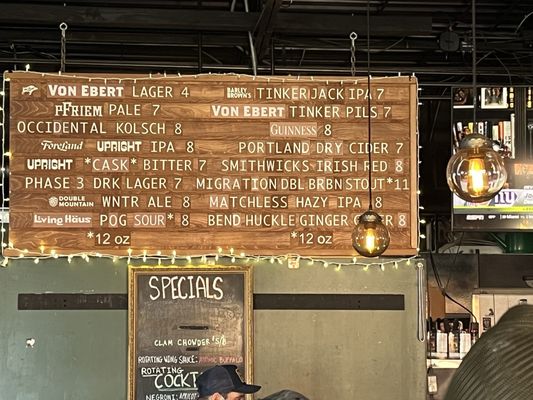 VON EBERT LAGER 4
PFRIEM PALE 7
OCCIDENTAL KOLSCH 8
Foreland UPRIGHT IPA 8
UPRIGHT *CASK* BITTER 7
PHASE 3 DRK LAGER 7
DOUBLE MOUNTAIN WNTR ALE 8
Living Häus POG SOUR* 8
*12 oz
BARLEY BROWN'S TINKERJACK IPA 7
VON EBERT TINKER PILS 7
GUINNESS 8
PORTLAND DRY CIDER 7
SMITHWICKS IRISH RED 8
MIGRATION DBL BRBN STOUT *11
MATCHLESS HAZY IPA 8
BEND HUCKLE GINGER 8
*12 oz
SPECIALS
CLAM CHOWDER $5/8
ROTATING WING SAUCE: BUFFALO
ROTATING
COCKT
NEGRONI:
ESPN